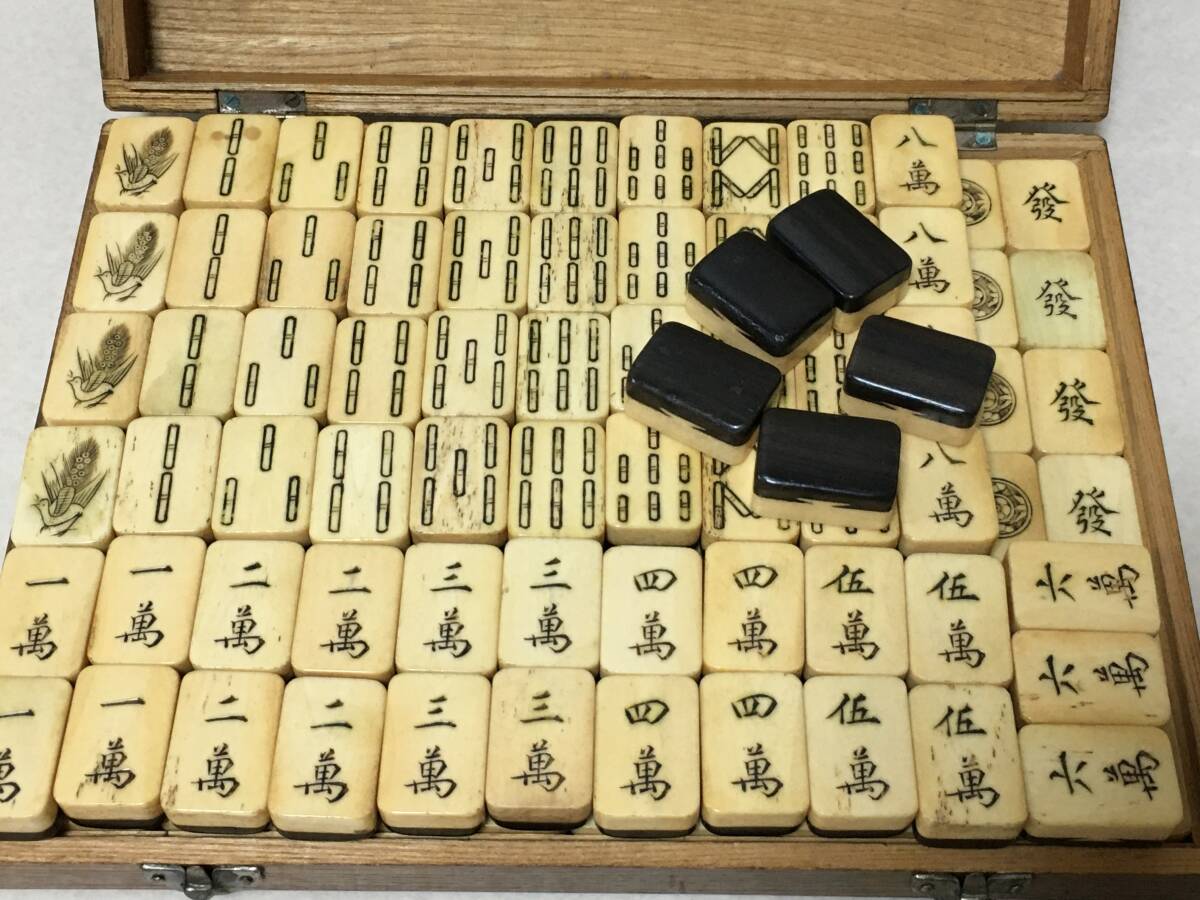 八萬
發
八萬
發
發
八萬
發
一萬
一萬
二萬
二萬
三萬
三萬
四萬
四萬
伍萬
伍萬
六萬
六萬
一萬
一萬
二萬
二萬
三萬
三萬
四萬
四萬
伍萬
伍萬
六萬